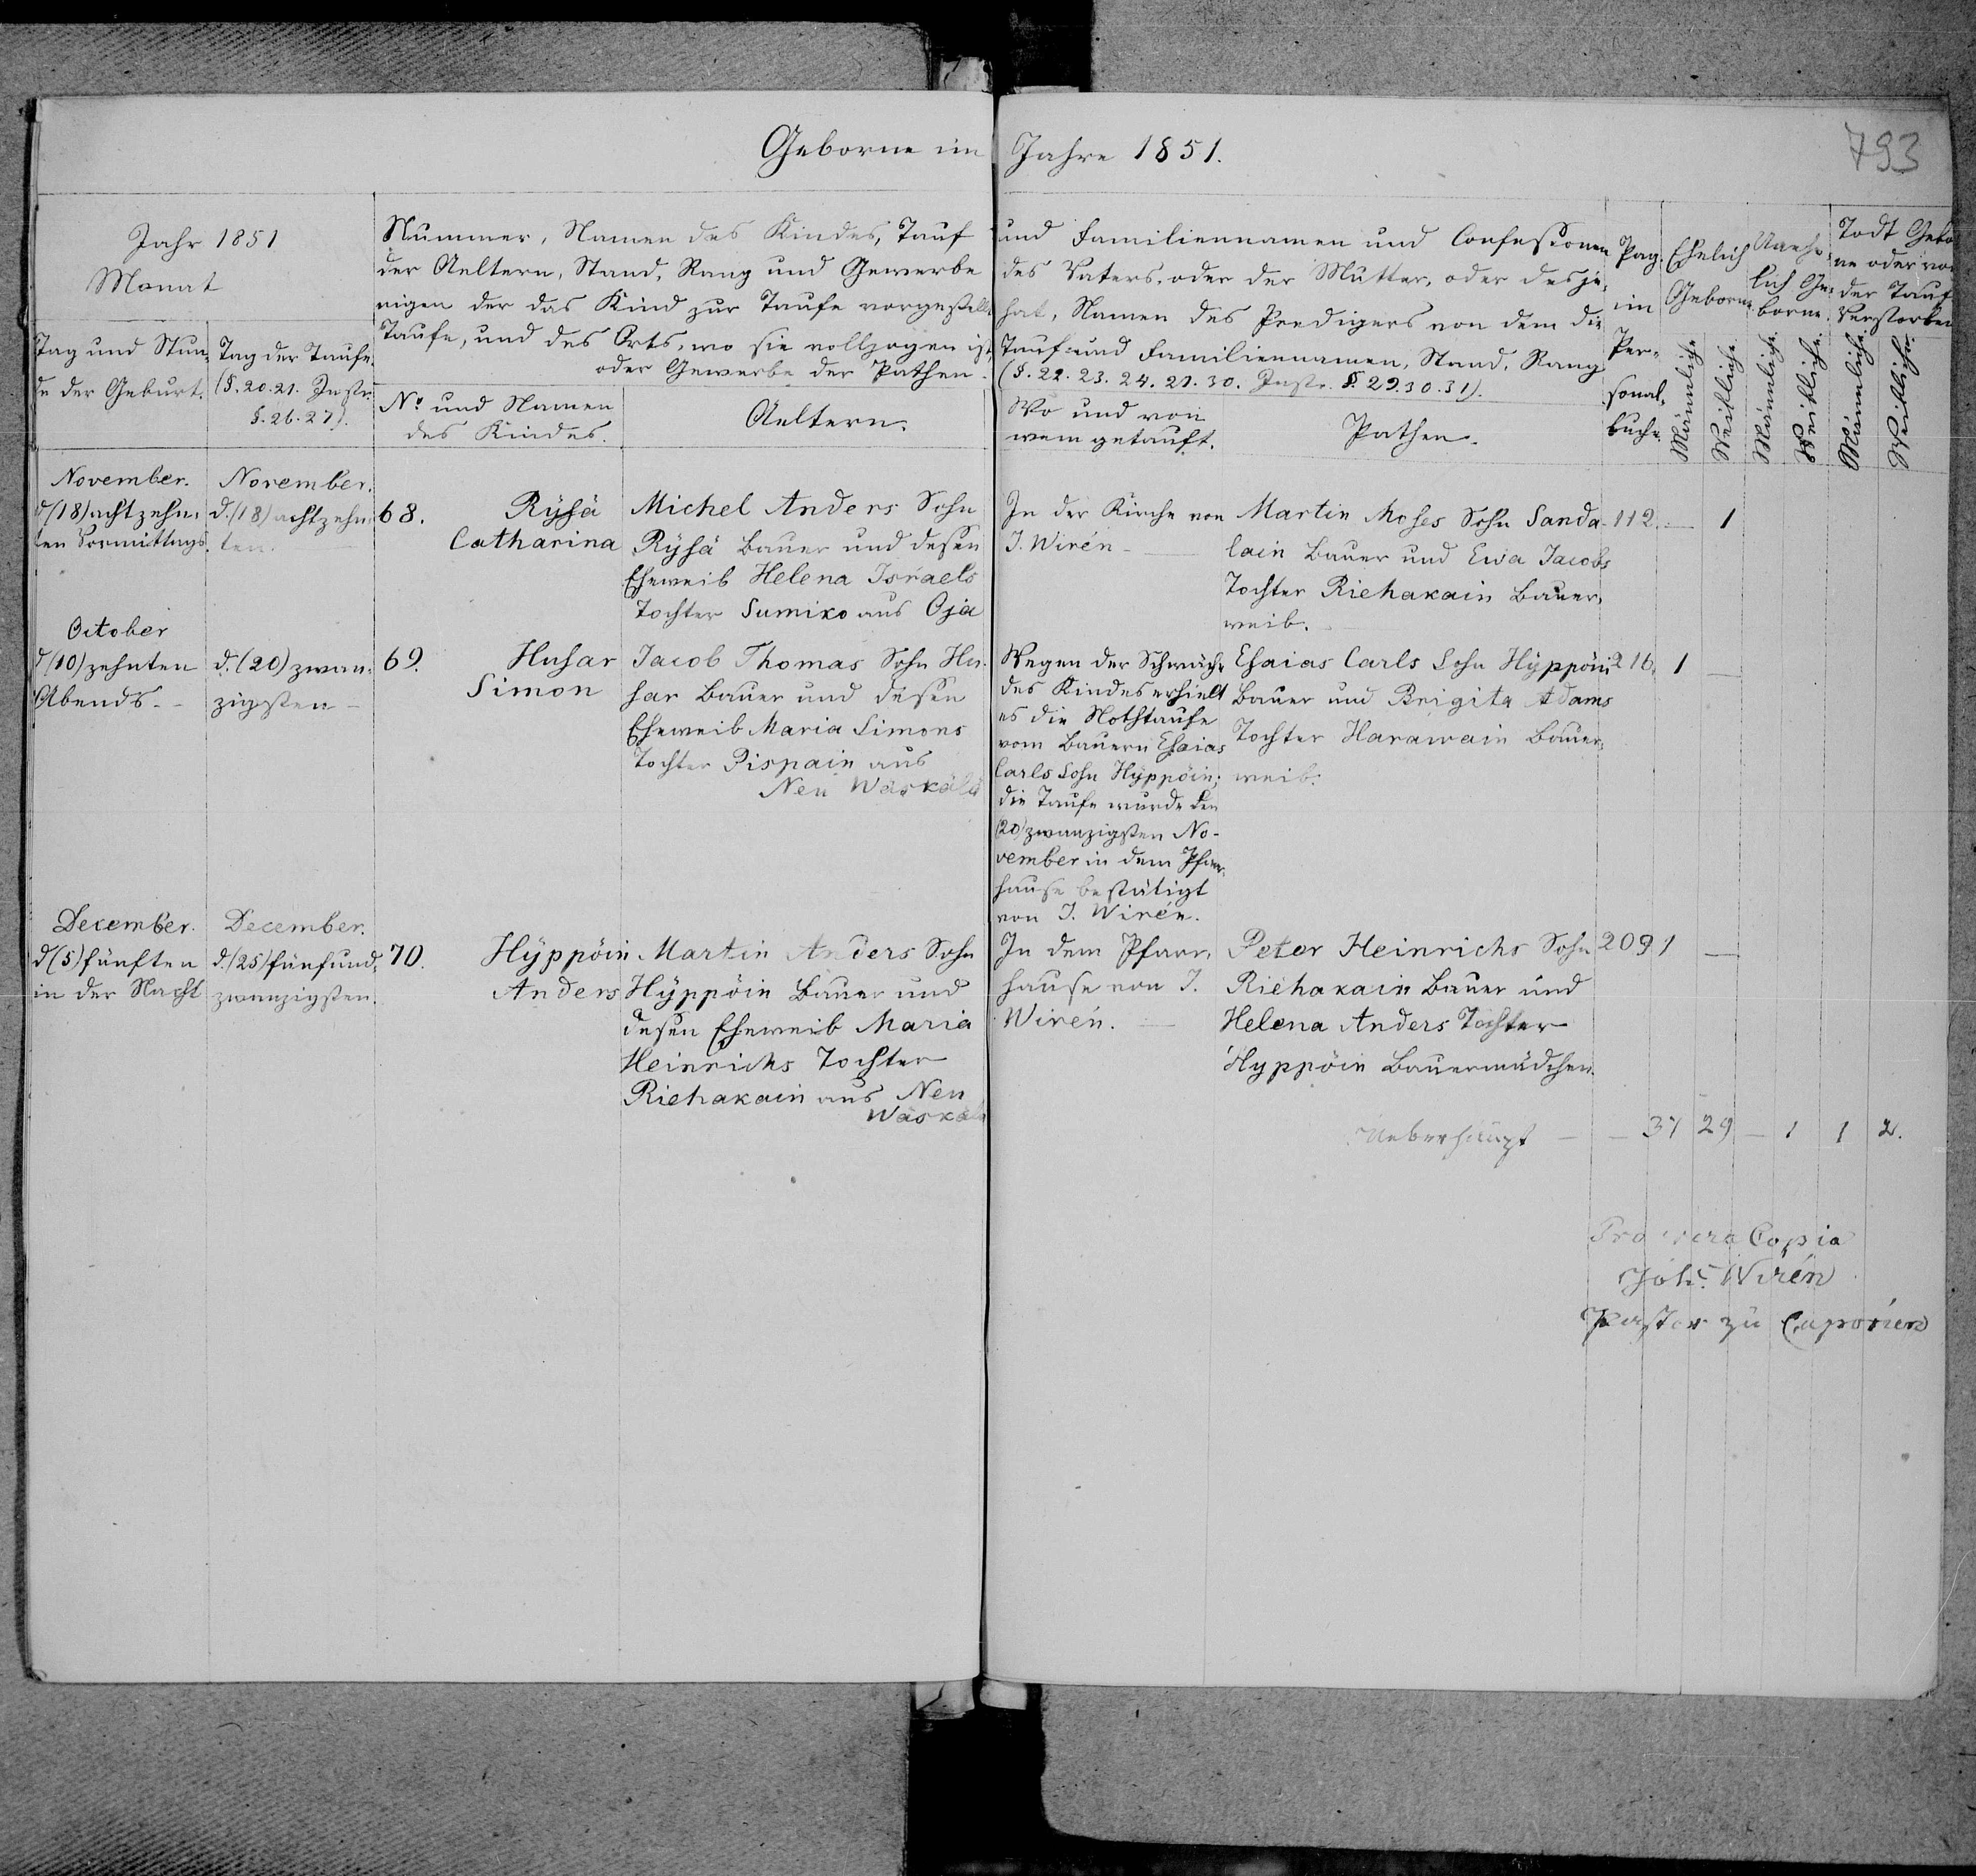 Geborne im Jahre 1851.
793
Jahr 1851
Monat
Tag und Stun-
de der Geburt.
Tag der Taufe.
(§. 20. 21. Instr.
§. 26. 27).
Nummer, Namen des Kindes, Tauf
der Aeltern, Stand, Rang und Gewerbe
nigen der das Kind zur Taufe vorgestellt
Taufe, und des Orts, wo sie vollzogen ist,
oder Gewerbe der Pathen.
No und Namen
des Kindes.
Aeltern.
und Familiennamen und Confessionen
des Vaters, oder der Mutter, oder desje-
hat, Namen des Predigers von dem die
Tauf und Familiennamen, Stand, Rang
(§. 22. 23. 24. 27. 30. Instr. §. 29. 30. 31).
Wo und von
wem getauft.
Pathen.
Pag.
im
Per-
sonal-
buche.
Ehelich
Geborne.
Unehe-
lich Ge-
borne.
Todt Gebo
ne oder vo
der Tauf
Verstorben
Männliche
Weibliche
Männliche
Weibliche
Männliche
Weibliche
November.
d (18) achtzehn-
ten Vormittags.
November.
d. (18) achtzehn-
ten.
68.
Rÿsä
Catharina
Michel Anders Sohn
Rÿsä Bauer und dessen
Eheweib Helena Israels
Tochter Sumiko aus Oja
In der Kirche von
J. Wirén
Martin Moses Sohn Sanda-
lain Bauer und Ewa Jacobs
Tochter Riehakain Bauer-
weib.
112. — 1
October
d (10) zehnten
Abends.
d. (20) zwan-
zigsten
69.
Husar
Simon
Jacob Thomas Sohn Hu-
sar Bauer und dessen
Eheweib Maria Simons
Tochter Pispain aus
Neu Wäskälä
Wegen der Schwäche
des Kindes erhielt
es die Nothtaufe
vom Bauern Esaias
Carls Sohn Hÿppöin;
die Taufe wurde den
(20) zwanzigsten No-
vember in dem Pfarr-
hause bestätigt
von J. Wirén.
Esaias Carls Sohn Hÿppöin
Bauer und Brigita Adams
Tochter Harawain Bauer-
weib.
216. 1 —
December.
d (5) fünften
in der Nacht
December.
d. (25) fünfund-
zwanzigsten.
70.
Hÿppöin
Anders
Martin Anders Sohn
Hÿppöin Bauer und
dessen Eheweib Maria
Heinrichs Tochter
Riehakain aus Neu
Wäskälä
In dem Pfarr-
hause von J.
Wirén.
Peter Heinrichs Sohn
Riehakain Bauer und
Helena Anders Tochter
Hyppöin Bauermädchen.
209 1 —
Ueberhaupt — — 37 29 — 1 1 2.
Pro vera Copia
Joh. Wirén
Pastor zu Caporien